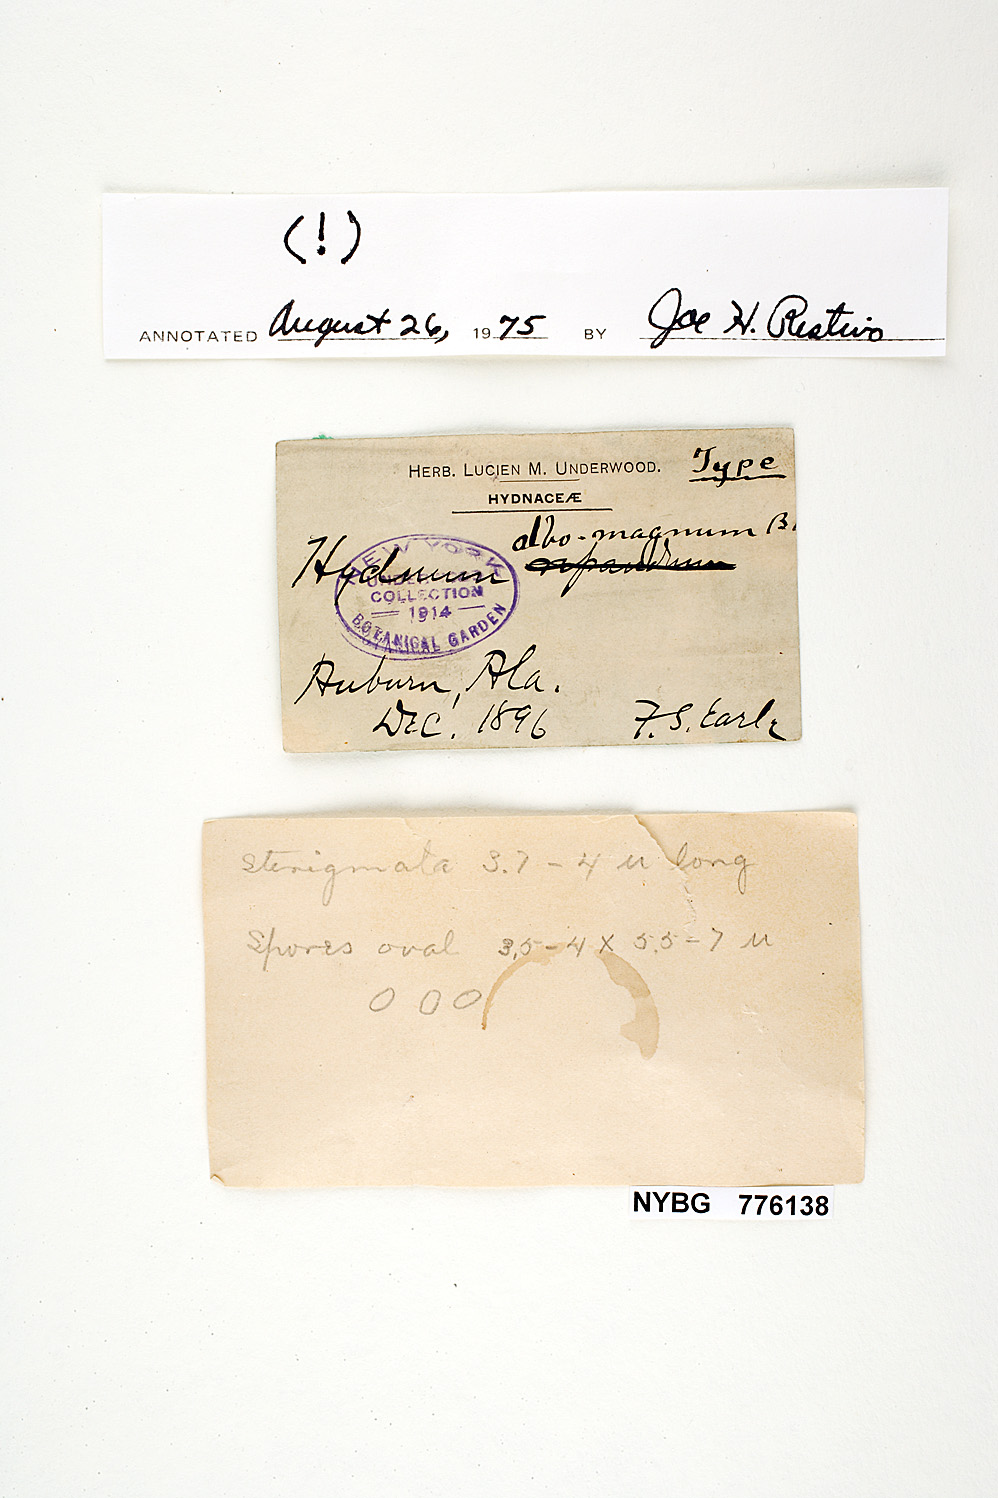 (!)
ANNOTATED August 26, 1975 BY Joe H. Restivo
HERB. LUCIEN M. UNDERWOOD. Type
HYDNACEÆ
albo-magnum B.
Hydnum
NEW YORK
COLLECTION
1914
BOTANICAL GARDEN
Auburn, Ala.
Dec. 1896 F. S. Earle
Sterigmata 3.7 - 4 u long
Spores oval 3.5-4 X 5.5-7 u
NYBG 776138